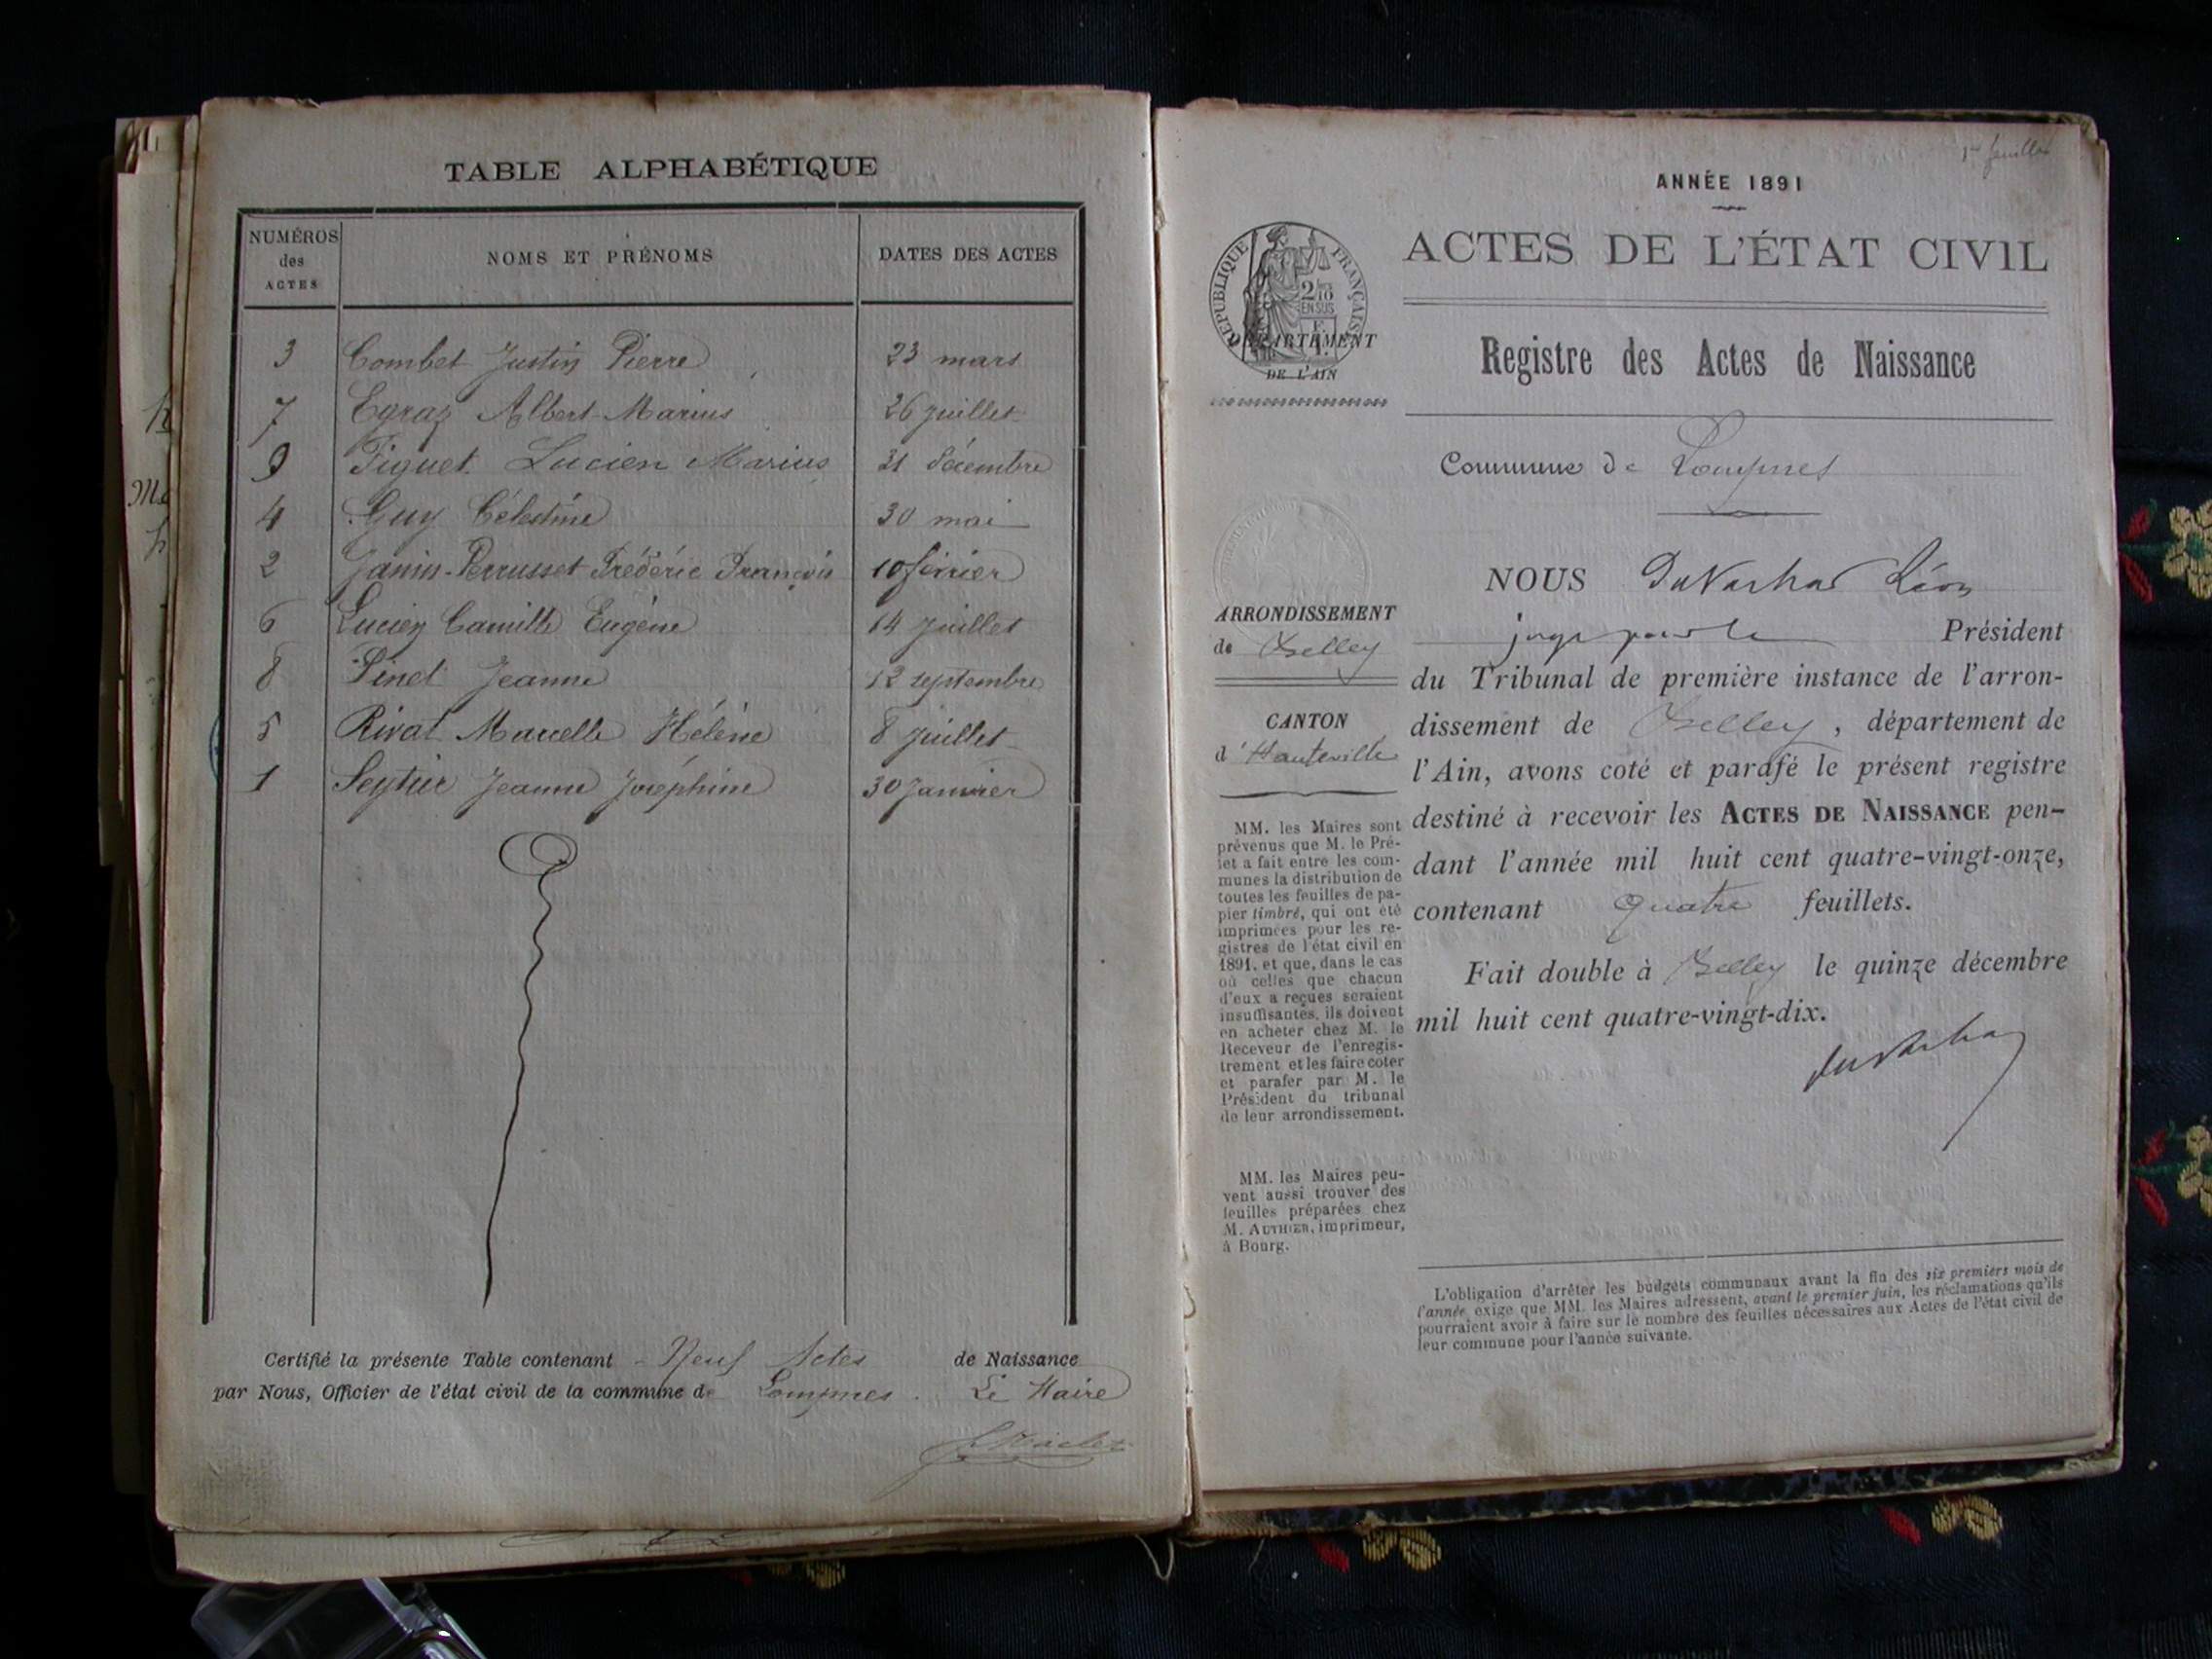 TABLE ALPHABÉTIQUE
NUMÉROS des ACTES NOMS ET PRÉNOMS DATES DES ACTES
3 Combet Justin Pierre 23 mars
7 Egraz Albert Marius 26 juillet
9 Figuet Lucien Marius 31 décembre
4 Guy Célestine 30 mai
2 Janin-Perrusset Frédéric François 10 février
6 Lucien Camille Eugène 14 juillet
8 Pinet Jeanne 12 septembre
5 Rivat Marcelle Hélène 8 juillet
1 Seytier Jeanne Joséphine 30 Janvier
Certifié la présente Table contenant Neuf Actes de Naissance
par Nous, Officier de l'état civil de la commune de Lompnes. Le Maire
1er feuillet
ANNÉE 1891
ACTES DE L'ÉTAT CIVIL
RÉPUBLIQUE FRANÇAISE
2/10
EN SUS
DÉPARTEMENT
DE L'AIN
Registre des Actes de Naissance
Commune de Lompnes
ARRONDISSEMENT
de Belley
CANTON
d'Hauteville
MM. les Maires sont
prévenus que M. le Pré-
fet a fait entre les com-
munes la distribution de
toutes les feuilles de pa-
pier timbré, qui ont été
imprimées pour les re-
gistres de l'état civil en
1891, et que, dans le cas
où celles que chacun
d'eux a reçues seraient
insuffisantes, ils doivent
en acheter chez M. le
Receveur de l'enregis-
trement et les faire coter
et parafer par M. le
Président du tribunal
de leur arrondissement.
MM. les Maires peu-
vent aussi trouver des
feuilles préparées chez
M. AUTHIER, imprimeur,
à Bourg.
NOUS Léon
Président
du Tribunal de première instance de l'arron-
dissement de Belley, département de
l'Ain, avons coté et parafé le présent registre
destiné à recevoir les ACTES DE NAISSANCE pen-
dant l'année mil huit cent quatre-vingt-onze,
contenant quatre feuillets.
Fait double à Belley le quinze décembre
mil huit cent quatre-vingt-dix.
L'obligation d'arrêter les budgets communaux avant la fin des six premiers mois de
l'année exige que MM. les Maires adressent, avant le premier juin, les réclamations qu'ils
pourraient avoir à faire sur le nombre des feuilles nécessaires aux Actes de l'état civil de
leur commune pour l'année suivante.